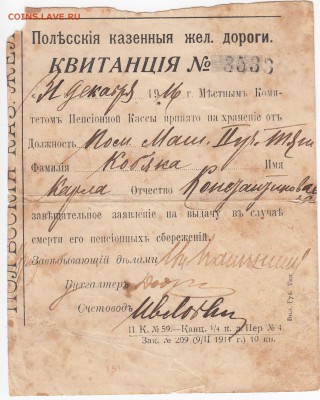 COINS.LAVE.RU
ПОЛѢССКІЯ КАЗ. ЖЕЛ.
Полѣсскія казенныя жел. дороги.
КВИТАНЦІЯ № 3536
31 декабря 1916 г. Мѣстнымъ Коми-
тетомъ Пенсіонной Кассы принято на храненіе отъ
Должность Пом. Маш. Тяги
Фамилія Кобяка Имя
Карла Отчество Константиновича
завѣщательное заявленіе на выдачу въ случаѣ
смерти его пенсіонныхъ сбереженій.
Завѣдывающій дѣлами
Бухгалтеръ
Счетоводъ
П. К. № 59.—Канц. 1/4 п. л. Пер. № 4.
Зак. № 209 (9/II 1911 г.) 10 кн.
Вил. Губ. Тип.